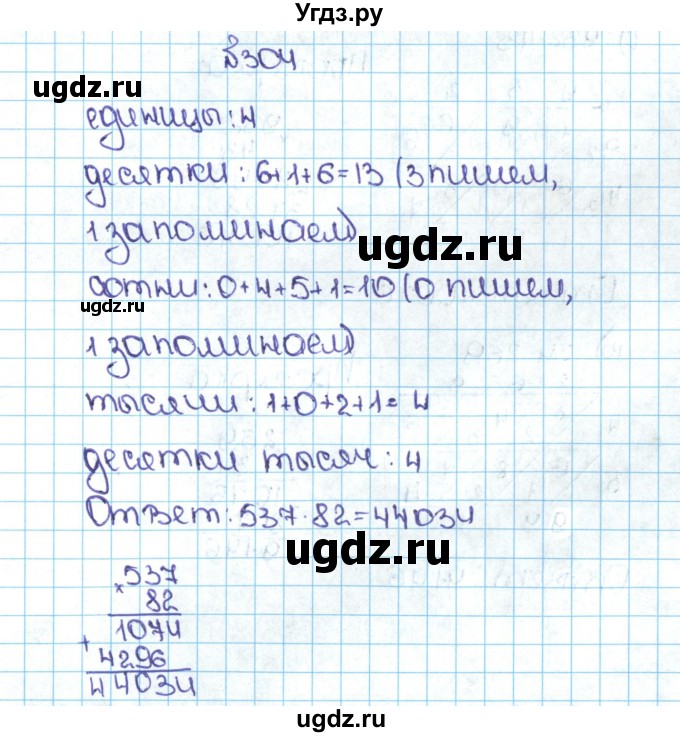 Угдз.ру
№304
ugdz.ru
единицы: 4
десятки: 6+1+6=13 (3 пишем,
1 запоминаем)
ugdz.ru
сотни: 0+4+5+1=10 (0 пишем,
ugdz.ru
1 запоминаем)
тысячи: 1+0+2+1=4
десятки тысяч: 4
Ответ: 537·82=44034
ugdz.ru
×537
82
1074
+
4296
44034
ugdz.ru